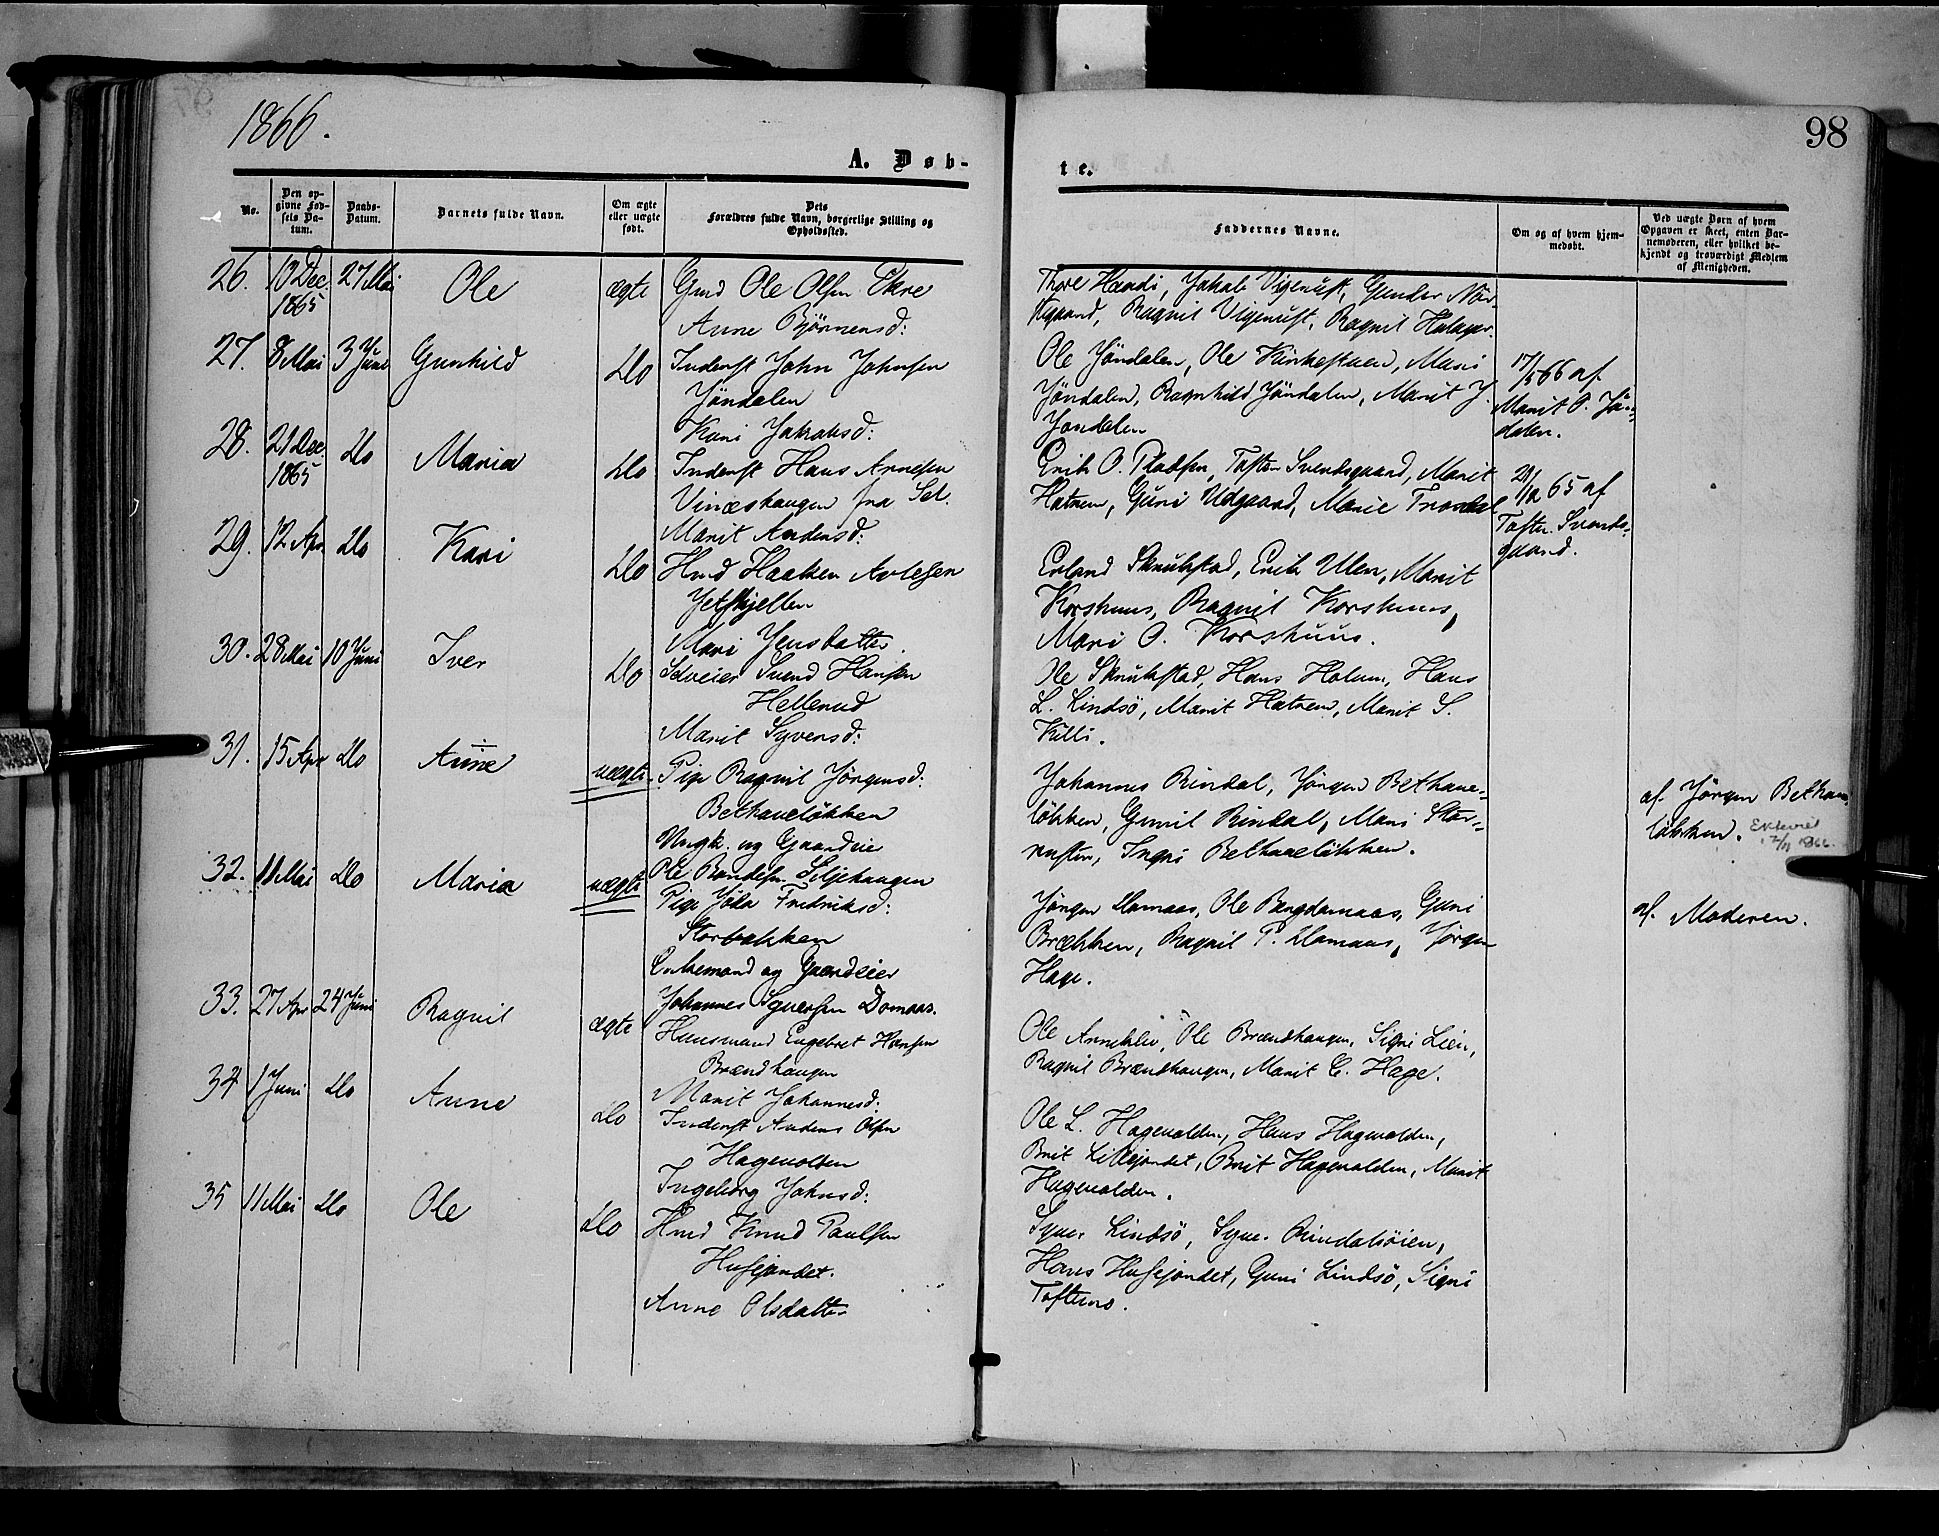 1866.
98
A. Døb-
te.
No.
Den op-
givne Fød-
sels Da-
tum.
Daabs-
Datum.
Barnets fulde Navn.
Om ægte
eller uægte
født.
Dets
Forældres fulde Navn, borgerlige Stilling og
Opholdssted.
Faddernes Navne.
Om og af hvem hjem-
medøbt.
Ved uægte Børn af hvem
Opgaven er skeet, enten Bar-
nemoderen, eller hvilket be-
kjendt og troværdigt Medlem
af Menigheden.
26. 10 Dec. 1865 27 Mai Ole ægte
Gmd Ole Olsen Ekre
Anne Bjørnensd:
Thore Hændi, Jakob Vigerust, Gunder Nor-
stgaard, Ragnil Vigerust, Ragnil
27. 8 Mai 3 Juni Gunhild Do
Inderst John Johnsen
Jøndalen
Kari Jakobsd:
Ole Jøndalen, Ole Kirkestuen, Mari
Jøndalen, Ragnhild Jøndalen, Marit J.
Jøndalen
17/5 66 af
Marit O. Jøn-
dalen.
28. 21 Dec. 1865 Do Maria Do
Inderst Hans Arnesen
Vinæshaugen fra Sel.
Marit Andersd:
Erik O. Pladsen, Tosten Svendsgaard, Marit
Hatrem, Guri Udgaard, Marie
21/12 65 af
Tosten Svends-
gaard.
29. 12 Apr. Do Kari Do
Hmd Haaken Avlesen
Jetfjellen
Mari Jensdatter.
Erland Skrukstad, Erik Ulen, Marit
Korshuus, Ragnil Korshuus,
Mari O. Korshuus.
30. 28 Mai 10 Juni Iver Do
Selveier Svend Hansen
Hellerud
Marit Syversd:
Ole Skrukstad, Hans Holum, Hans
L. Lindsø, Marit Hatrem, Marit S.
Killi.
31. 15 Apr Do Anne uægte.
Pige Ragnil Jørgensd:
Bethaneløkken
Ungk. og Gaardeier
Ole Bondesn. Siljehaugen
Johannes Rindal, Jørgen Bethane-
løkken, Gunil Rindal, Mari Stor-
rusten, Ingri Bethaneløkken.
af Jørgen Bethane
løkken.
1866.
32. 11 Mai Do Maria uægte
Pige Jøda Fredriksd:
Storbakken
Enkemand og Gaardeier
Johannes Syversen Domaas.
Jørgen Domaas, Ole Bergdomaas, Guri
Brækken, Ragnil P. Domaas, Jørgen
Hage.
af Moderen.
33. 27 Apr 24 Juni Ragnil ægte
Huusmand Engebret Hansen
Brændhaugen
Marit Johannesd:
Ole Anneklev, Ole Brændhaugen, Signi Lien,
Ragnil Brændhaugen, Marit E. Hage.
34 1 Juni Do Anne Do
Inderst Anders Olsen
Hagevolden
Ingeborg Johnsd:
Ole L. Hagevolden, Hans Hagevolden,
Brit Lillejondet, Brit Hagevolden, Marit
Hagevolden.
35 11 Mai Do Ole Do
Hmd Knud Paulsen
Husejondet.
Anne Olsdatter
Syver Lindsø, Syver Rindalsøien,
Hans Husejondet, Guri Lindsø, Signi
Toftemo.